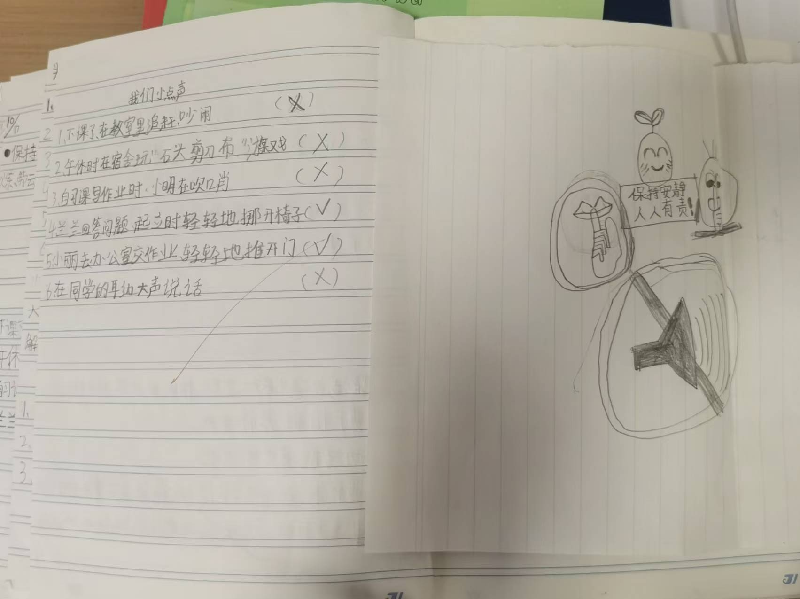 我们小点声
1.下课了,在教室里追赶吵闹 (X)
2.午休时在宿舍玩"石头剪刀布"游戏 (X)
3.自习课写作业时,小明在吹口哨 (X)
4.兰兰回答问题,起立时轻轻地挪开椅子 (√)
5.小丽去办公室交作业,轻轻地推开门 (√)
6.在同学的耳边大声说话 (X)
保持安静
人人有责!